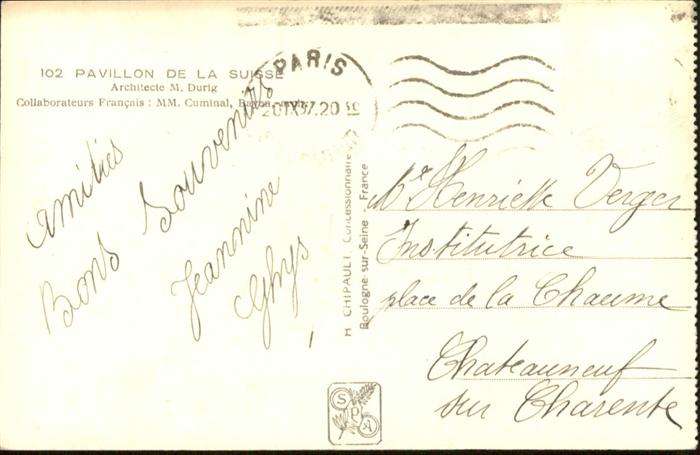 102 PAVILLON DE LA SUISSE
Architecte M. Durig
Collaborateurs Français : MM. Cuminal,
PARIS
IX 37. 20
Amitiés
Bons Souvenirs
Jeannine
Ghys
H CHIPAULT, Concessionnaire
Boulogne-sur-Seine - France
Henriette Verger
Institutrice
place de la Chaume
Chateauneuf
sur Charente
SPA